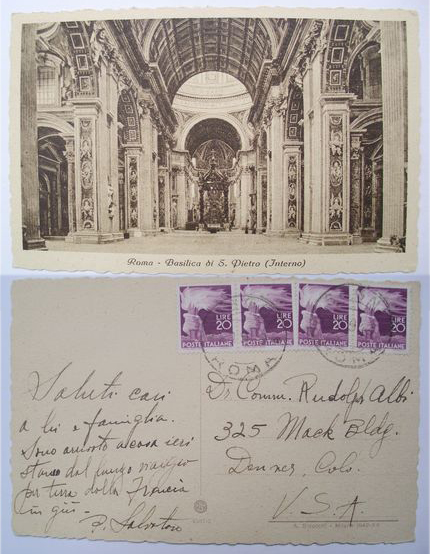 Roma - Basilica di S. Pietro (Interno)
LIRE
20
POSTE ITALIANE
LIRE
20
POSTE ITALIANE
LIRE
20
POSTE ITALIANE
LIRE
20
POSTE ITALIANE
ROMA
ROMA
Saluti cari
a lei e famiglia.
Sono arrivato a casa ieri
stanco dal lungo viaggio
per terra dalla Francia
in giù.
P. Salvatore
Dr. Comm. Rudolph Albi
325 Mack Bldg.
Denver, Colo.
U.S.A.